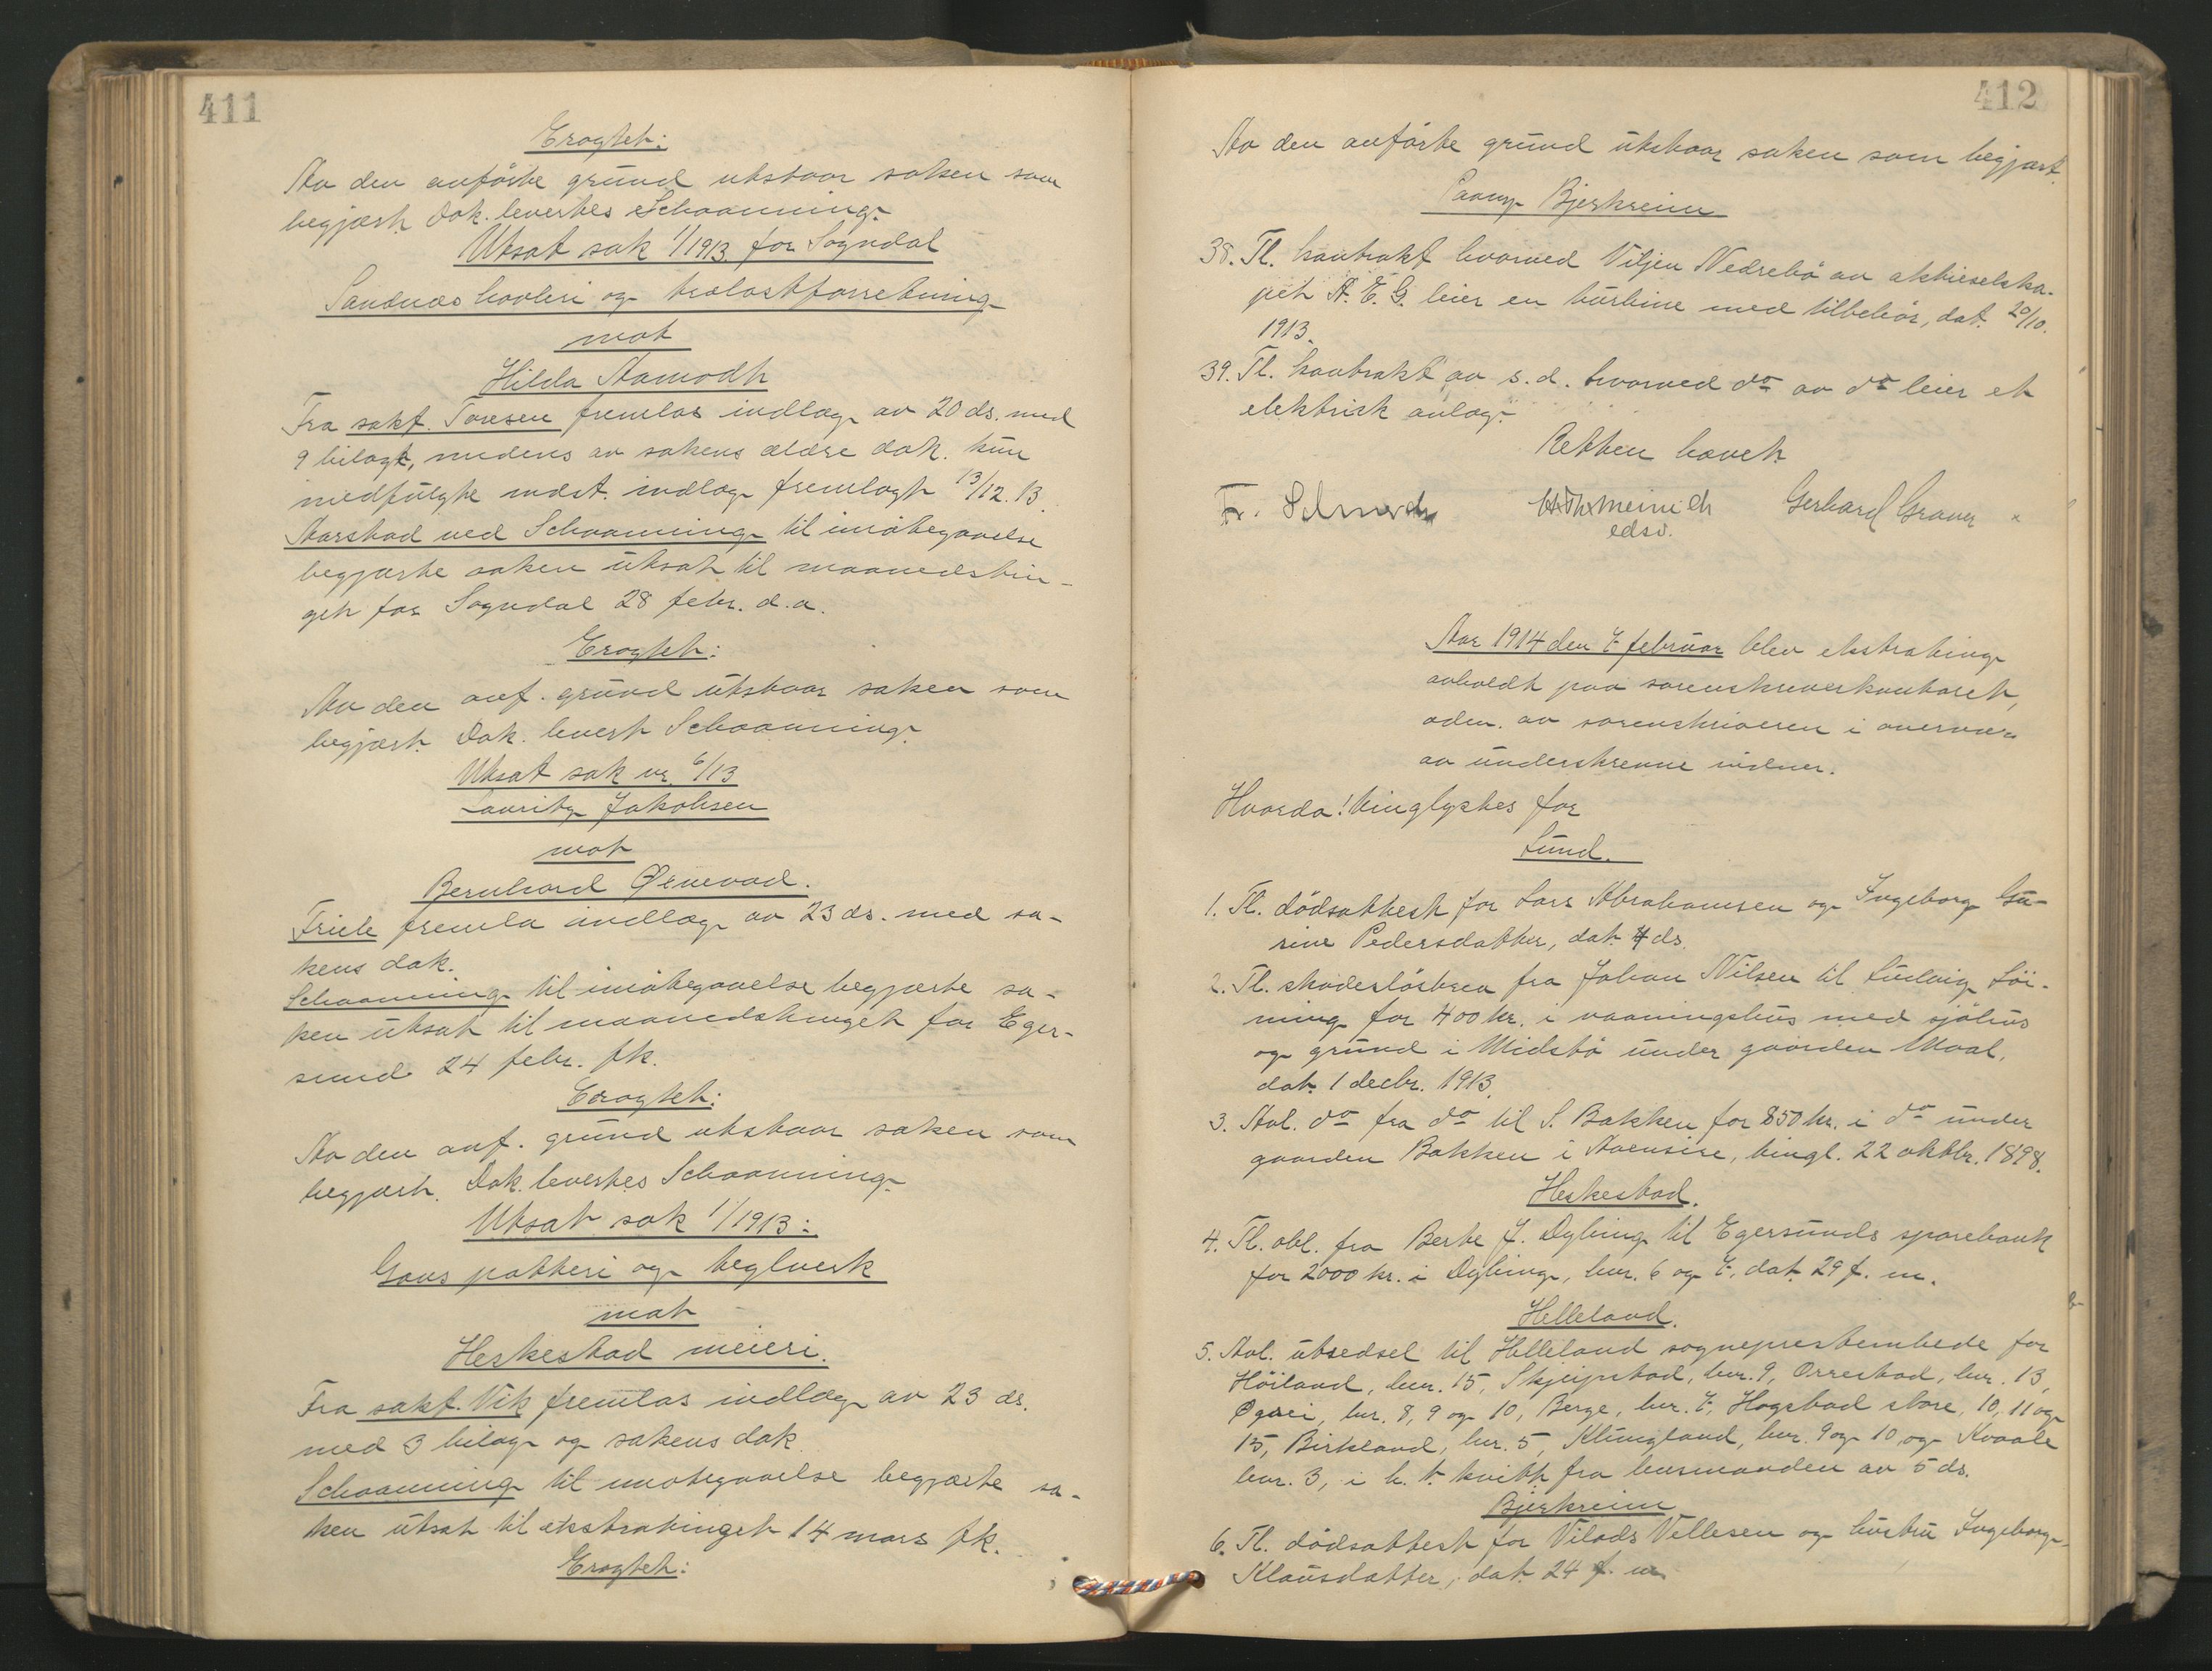 411
Eragtet:
Av den anförte grund utstaar saken som
begjært. Dok. levertes Schaanning.
Utsat sak 1/1913 for Sogndal
Sandnes høvleri og trælastforretning
mot
Hilda Aamodt
Fra sakf. Toresen fremlas indlæg av 20 ds. med
9 bilag, medens av sakens ældre dok. kun
medfulgte indlæg fremlagt 13/12. 13.
Aarstad ved Schaanning til imøtegaaelse
begjærte saken utsat til maanedstin-
get for Sogndal 28 febr. d.a.
Eragtet:
Av den anf. grund utstaar saken som
begjært. Dok. levert Schaanning.
Utsat sak nr. 6/13
Lauritz Jakobsen
mot
Bernhard Ørnevad.
Friele fremla indlæg av 23 ds. med sa-
kens dok.
Schaanning til imøtegaaelse begjærte sa-
ken utsat til maanedstinget for Eger-
sund 24 febr. fk.
Eragtet:
Av den anf. grund utstaar saken som
begjært. Dok. levertes Schaanning.
Utsat sak 1/1913:
Gans potteri og teglverk
mot
Heskestad meieri.
Fra sakf. Vik fremlas indlæg av 23 ds.
med 3 bilag og sakens dok.
Schaanning til imøtegaaelse begjærte sa-
ken utsat til ekstratinget 14 mars fk.
Eragtet:
412
Av den anførte grund utstaar saken som begjært.
Paany Bjerkreim
38. Tl. kontrakt hvorved Viljen Nedrebö av aktieselska-
pet A. E. G. leier en turbine med tilbehör, dat. 20/10.
1913.
39. Tl. kontrakt av s. d. hvorved do av do leier et
elektrisk anlæg.
Retten hævet.
Meinich Gerhard Graver
edsv.
Aar 1914 den 7 februar blev ekstrating
avholdt paa sorenskriverkontoret,
adm. av sorenskriveren i overvær
av underskrevne vidner.
Hvorda! tinglystes for
Lund.
1. Tl. dödsattest for Lars Abrahamsen og Ingeborg Gu-
rine Pedersdatter, dat. 4 ds.
2. Tl. skadeslösbrev fra Johan Nilsen til Ludvig Löi-
ning for 400 kr. i vaaningshus med sjöhus
og grund i Midstö under gaarden Moal,
dat. 1 decbr. 1913.
3. Avl. do fra do til S. Bakken for 850 kr. i do under
gaarden Bakken i Aaensire, tingl. 22 oktbr. 1898.
Heskestad.
4. Tl. obl. fra Berte J. Dybing til Egersunds sparebank
for 2000 kr. i Dybing, bnr. 6 og 7, dat. 29 f. m.
Helleland.
5. Avl. utsedsel til Helleland sogneprestembede for
Höiland, bnr. 15, Skjeipstad, bnr. 9, Orrestad, bnr. 13,
Øgrei, bnr. 8, 9 og 10, Berge, bnr. 7, Hogstad store, 10, 11 og
15, Birkeland, bnr. 5, Klungland, bnr. 9 og 10 og Kvaale
bnr. 3, i h. t. kvitt. fra lensmanden av 5 ds.
Bjerkreim
6. Tl. dödsattest for Vilads Vellesen og hustru Ingeborg
Klausdatter, dat. 24 f. m.